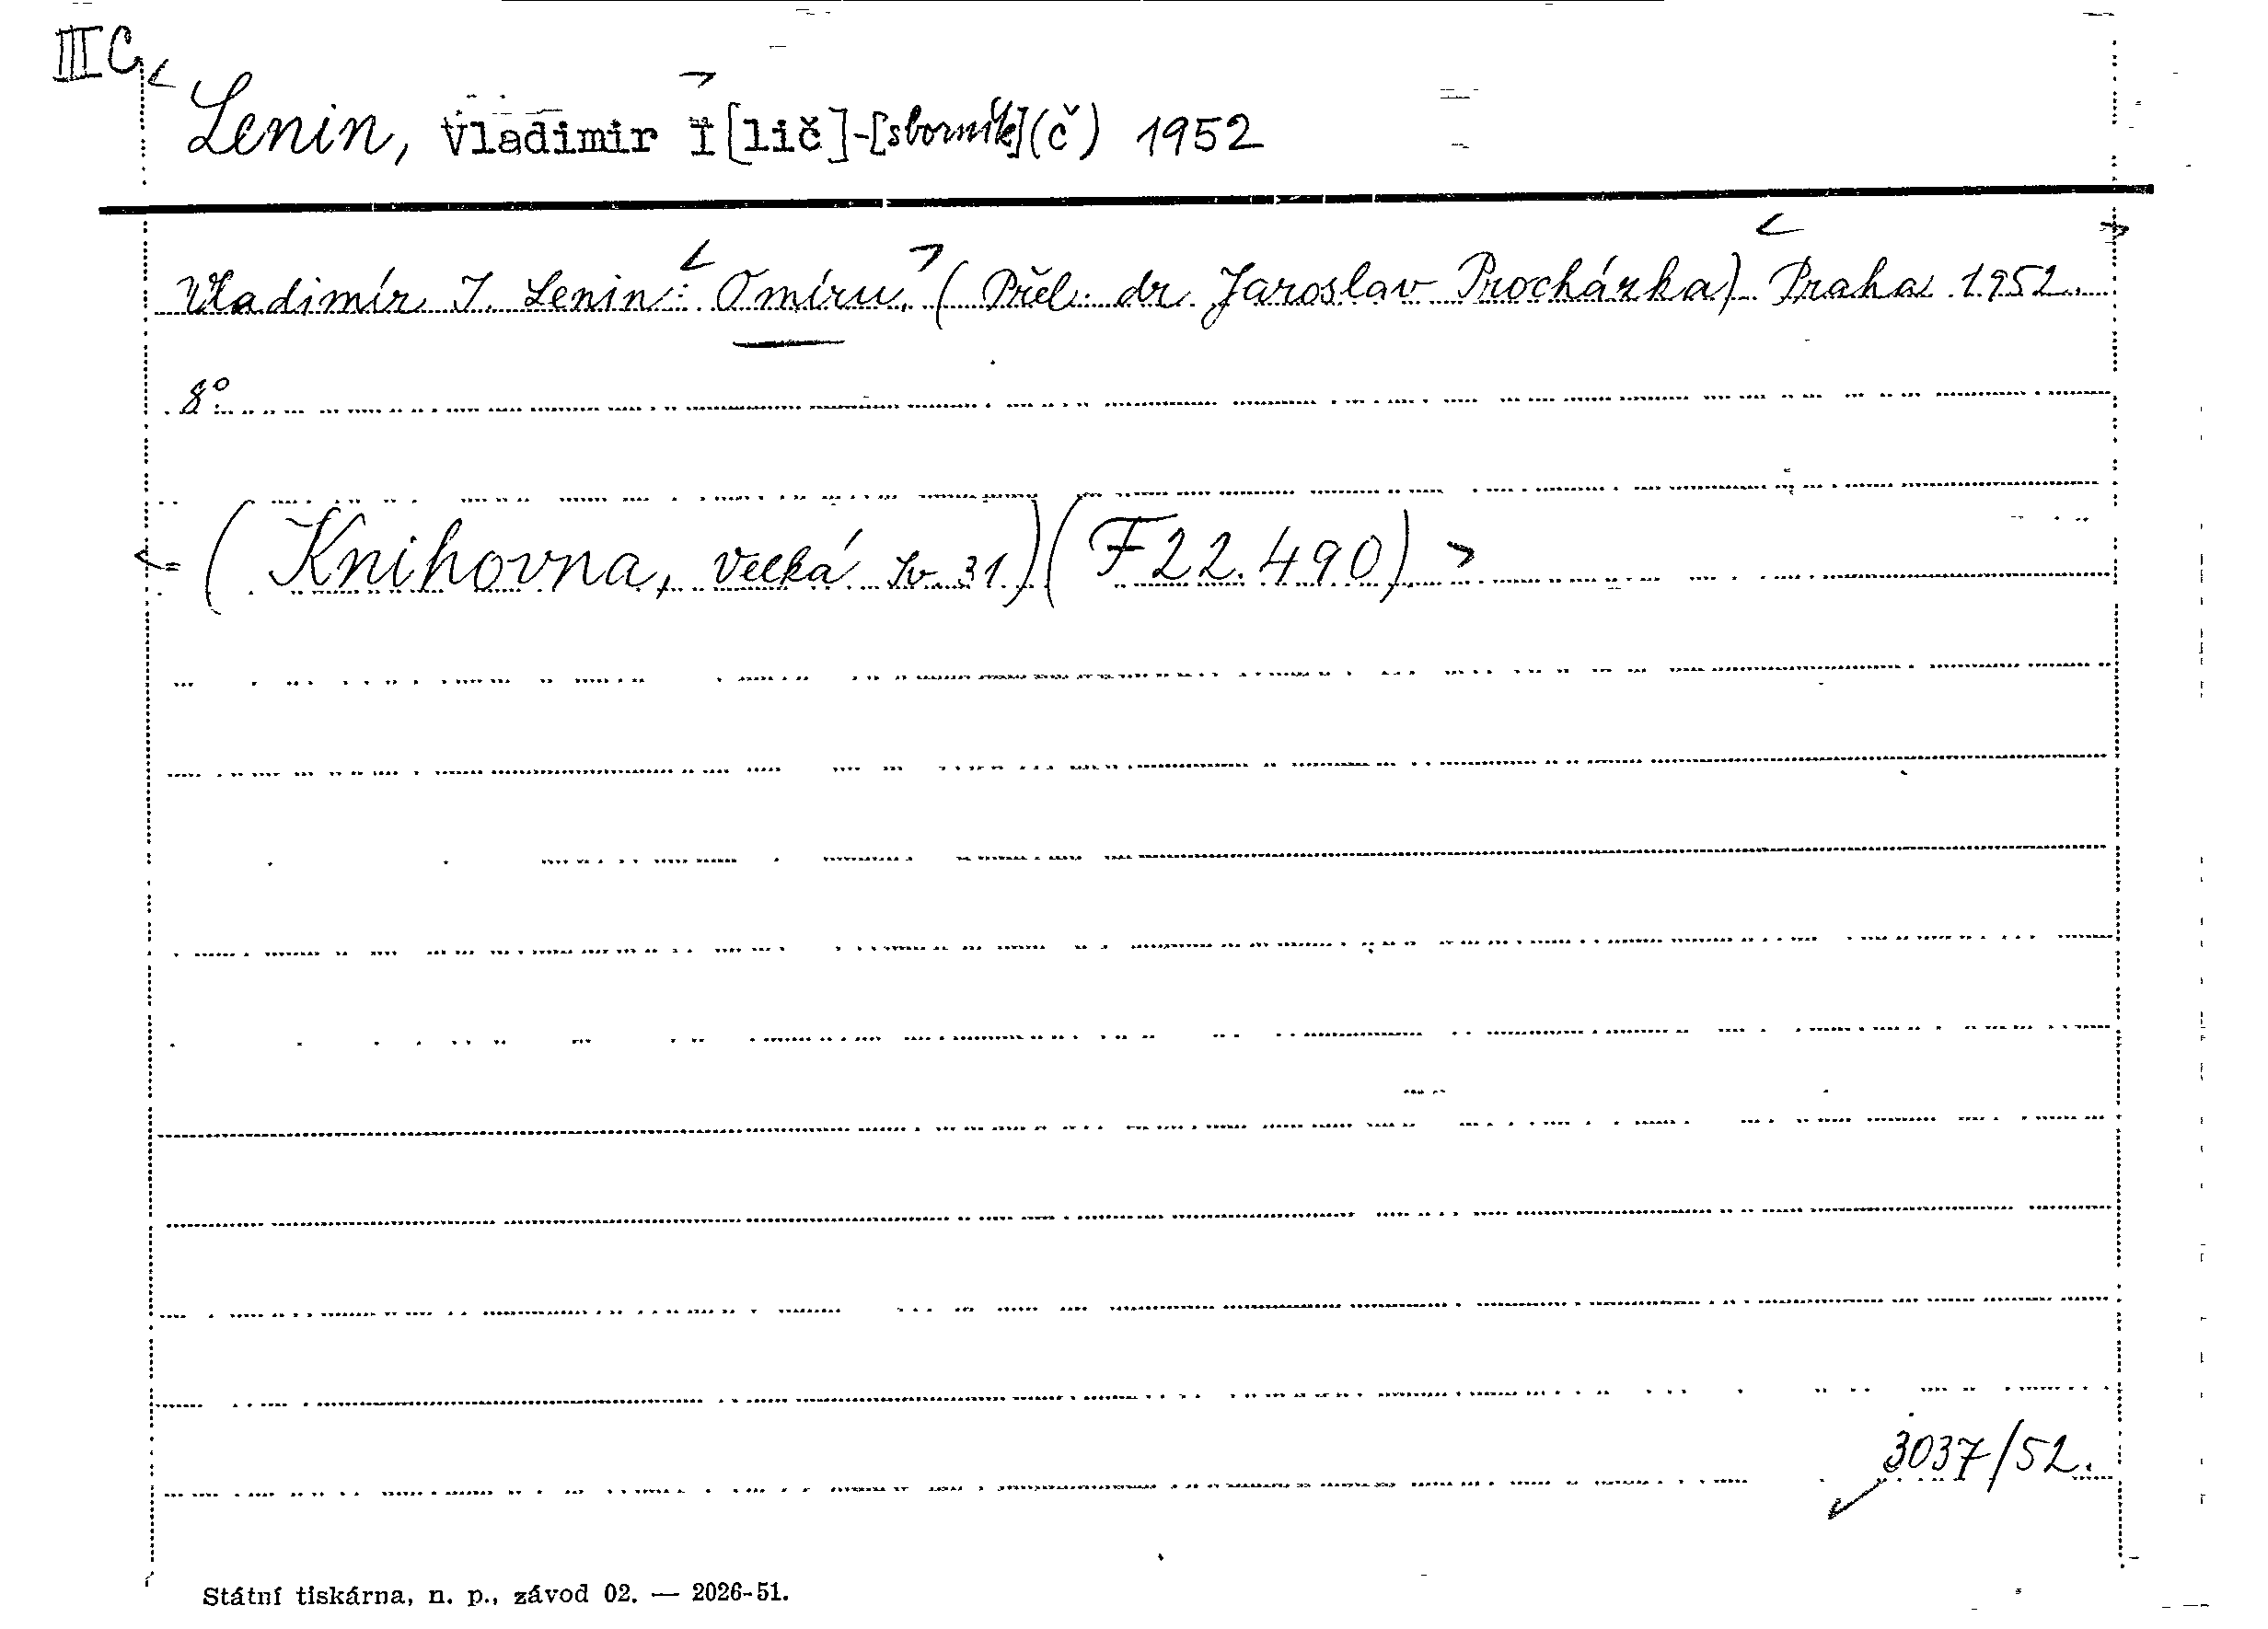 III C
Lenin, Vladimir I[lič]-[sborník](č) 1952
Vladimír I. Lenin: O míru. (Přel. dr. Jaroslav Procházka) Praha 1952.
8°
(Knihovna, velká sv. 31) (F22.490)
3037/52.
Státní tiskárna, n. p., závod 02. — 2026-51.